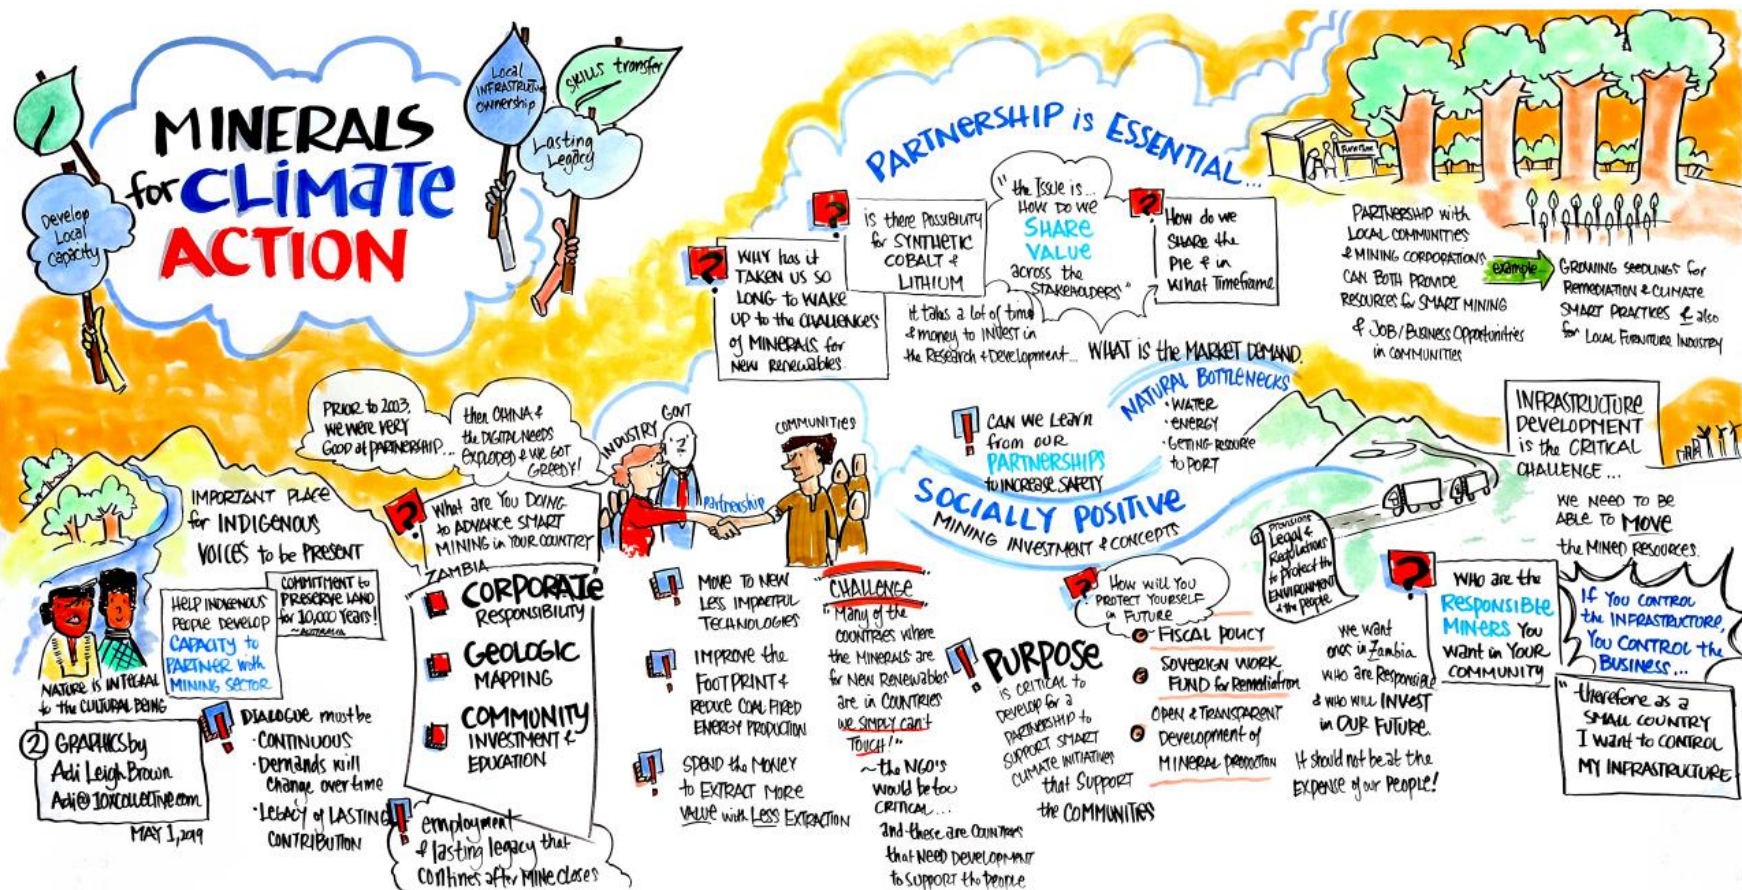 MINERALS
for CLIMATE
ACTION
Develop
Local
Capacity
Local
INFRASTRUCTURE
OWNERSHIP
SKILLS transfer
Lasting
Legacy
PARTNERSHIP is ESSENTIAL...
?
WHY has it
TAKEN US SO
LONG to WAKE
UP to the CHALLENGES
of MINERALS for
NEW Renewables.
?
is there POSSIBILITY
for SYNTHETIC
COBALT &
LITHIUM
it takes a lot of time
& money to INVEST in
the Research & Development...
"the Issue is...
HOW DO WE
SHARE
VALUE
across the
STAKEHOLDERS"
?
How do we
SHARE the
PIE & in
what Timeframe
WHAT is the MARKET DEMAND.
PARTNERSHIP with
LOCAL COMMUNITIES
& MINING CORPORATIONS
CAN BOTH PROVIDE
RESOURCES for SMART MINING
& JOB/BUSINESS Opportunities
in COMMUNITIES
example
GROWING SEEDLINGS for
Remediation & CLIMATE
SMART PRACTICES & also
for LOCAL FURNITURE INDUSTRY
Furniture
PRIOR to 2003,
we were very
Good at PARTNERSHIP...
then CHINA &
the DIGITAL NEEDS
EXPLODED & WE GOT
GREEDY!
INDUSTRY
GOVT
COMMUNITIES
Partnership
!
CAN WE LEARN
from OUR
PARTNERSHIPS
to INCREASE SAFETY
NATURAL BOTTLENECKS
• WATER
• ENERGY
• GETTING RESOURCE
to PORT
SOCIALLY POSITIVE
MINING INVESTMENT & CONCEPTS
INFRASTRUCTURE
DEVELOPMENT
is the CRITICAL
CHALLENGE...
WE NEED TO BE
ABLE TO MOVE
the MINED RESOURCES.
IMPORTANT PLACE
for INDIGENOUS
VOICES to be PRESENT
HELP INDIGENOUS
PEOPLE DEVELOP
CAPACITY to
PARTNER with
MINING SECTOR
COMMITMENT to
PRESERVE LAND
for 10,000 Years!
~AUSTRALIA
NATURE is INTEGRAL
to the CULTURAL BEING
② GRAPHICS by
Adi Leigh Brown
Adi@10XCOLLECTIVE.com
MAY 1, 2019
!
DIALOGUE must be
• CONTINUOUS
• Demands will
Change over time
• LEGACY of LASTING
CONTRIBUTION
?
What are You DOING
to ADVANCE SMART
MINING in YOUR COUNTRY
ZAMBIA
CORPORATE
RESPONSIBILITY
GEOLOGIC
MAPPING
COMMUNITY
INVESTMENT &
EDUCATION
!
employment
& lasting legacy that
continues after MINE closes
!
MOVE TO NEW
LESS IMPACTFUL
TECHNOLOGIES
!
IMPROVE the
FOOTPRINT &
REDUCE COAL FIRED
ENERGY PRODUCTION
!
SPEND the MONEY
to EXTRACT MORE
VALUE with LESS EXTRACTION
CHALLENGE
"Many of the
COUNTRIES where
the MINERALS are
for New Renewables
are in COUNTRIES
we SIMPLY can't
TOUCH!"
~ the NGO'S
would be too
CRITICAL...
and these are COUNTRIES
that NEED DEVELOPMENT
to SUPPORT the People
!
PURPOSE
is CRITICAL to
DEVELOP for a
PARTNERSHIP to
SUPPORT SMART
CLIMATE INITIATIVES
that SUPPORT
the COMMUNITIES
?
How will You
PROTECT YOURSELF
in FUTURE
FISCAL POLICY
SOVERIGN WORK
FUND for Remediation
OPEN & TRANSPARENT
Development of
MINERAL PRODUCTION
Provisions
Legal &
Regulations
to protect the
ENVIRONMENT
& the People
we want
ones in Zambia
who are Responsible
& who will INVEST
in OUR FUTURE.
It should not be at the
EXPENSE of our People!
?
WHO are the
RESPONSIBLE
MINERS YOU
want in YOUR
COMMUNITY
If YOU CONTROL
the INFRASTRUCTURE,
YOU CONTROL the
BUSINESS...
"therefore as a
SMALL COUNTRY
I want to CONTROL
MY INFRASTRUCTURE